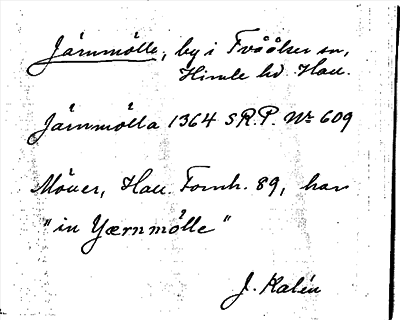 Järnmölle, by i Tvååker sn,
Himle hd. Hall.
Järnmölla 1364 SR.P. Nr 609
Möller, Hall. Fornh. 89, har
"in Yærnmölle"
J. Kalén